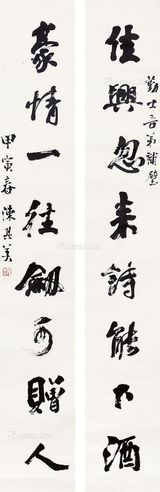 佳興忽来詩能下酒
勤士吾弟補壁
豪情一往劍可贈人
甲寅春 陳其美